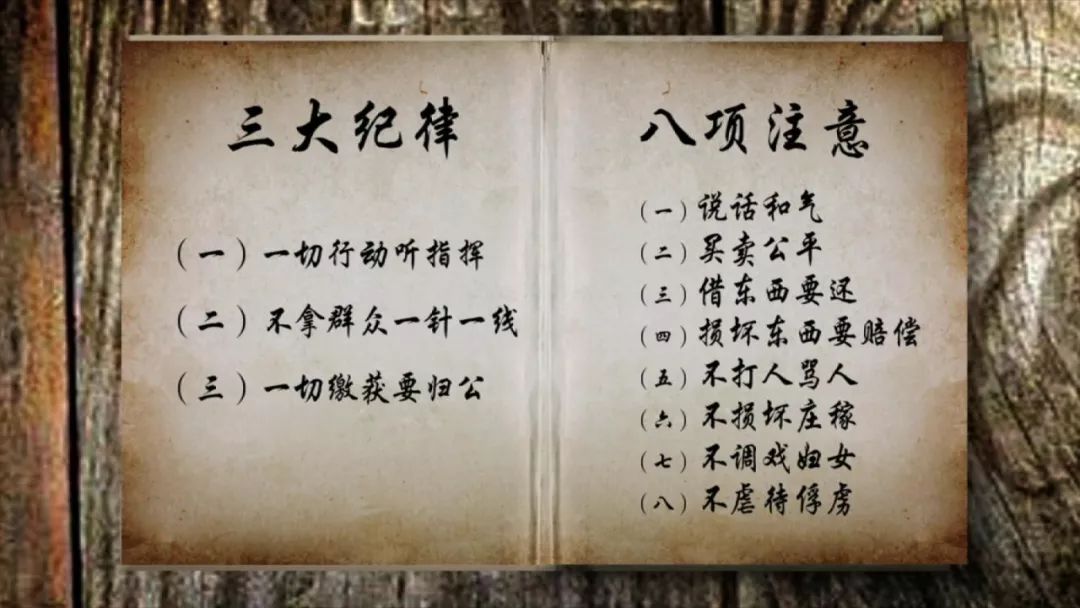 三大纪律
（一）一切行动听指挥
（二）不拿群众一针一线
（三）一切缴获要归公
八项注意
（一）说话和气
（二）买卖公平
（三）借东西要还
（四）损坏东西要赔偿
（五）不打人骂人
（六）不损坏庄稼
（七）不调戏妇女
（八）不虐待俘虏